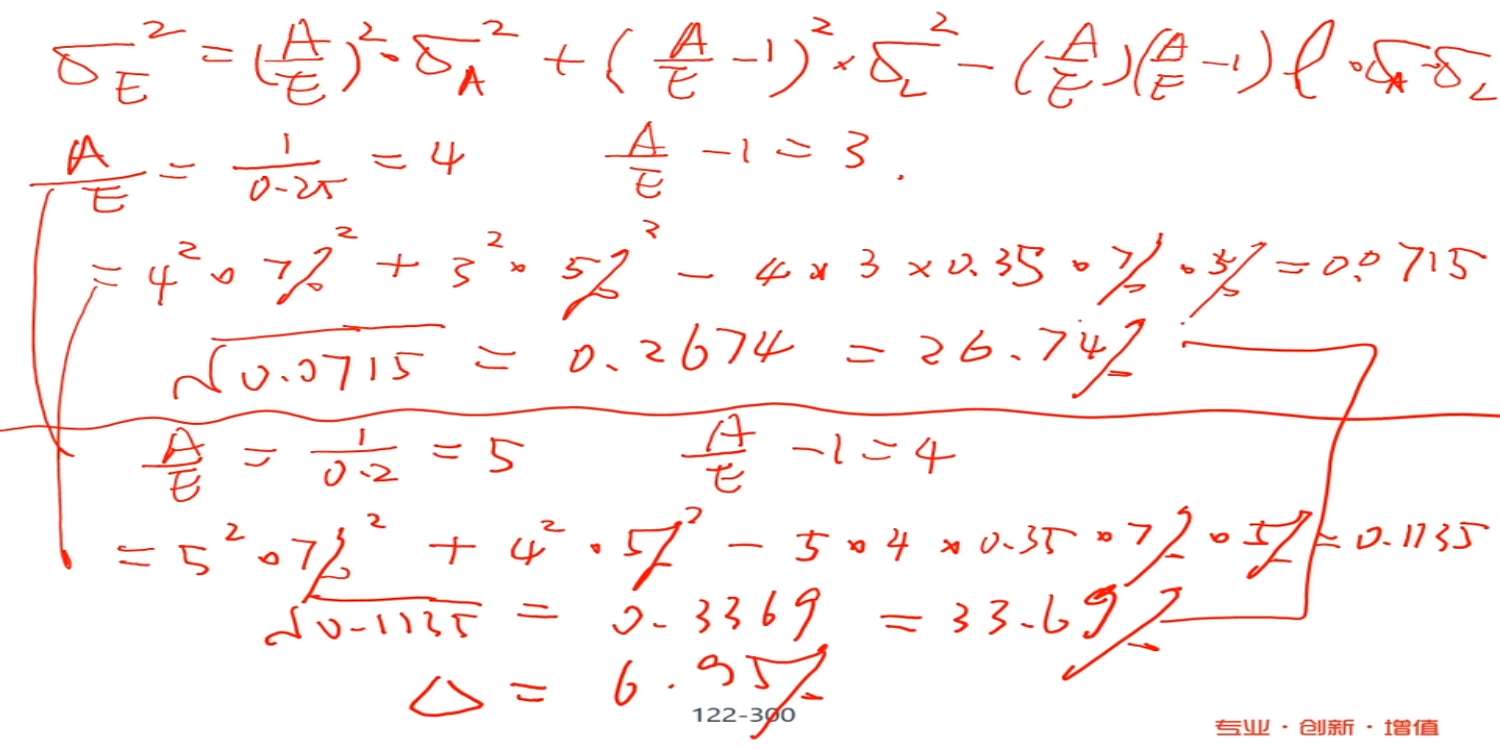 σ_E² = (A/E)² · σ_A² + (A/E - 1)² × σ_L² - (A/E)(A/E - 1) ρ · σ_A · σ_L
A/E = 1/0.25 = 4    A/E - 1 = 3.
= 4² · 7%² + 3² · 5%² - 4 × 3 × 0.35 · 7% · 5% = 0.0715
√0.0715 = 0.2674 = 26.74%
A/E = 1/0.2 = 5    A/E - 1 = 4
= 5² · 7%² + 4² · 5%² - 5 · 4 × 0.35 · 7% · 5% = 0.1135
√0.1135 = 0.3369 = 33.69%
△ = 6.95%
122-300
专业·创新·增值